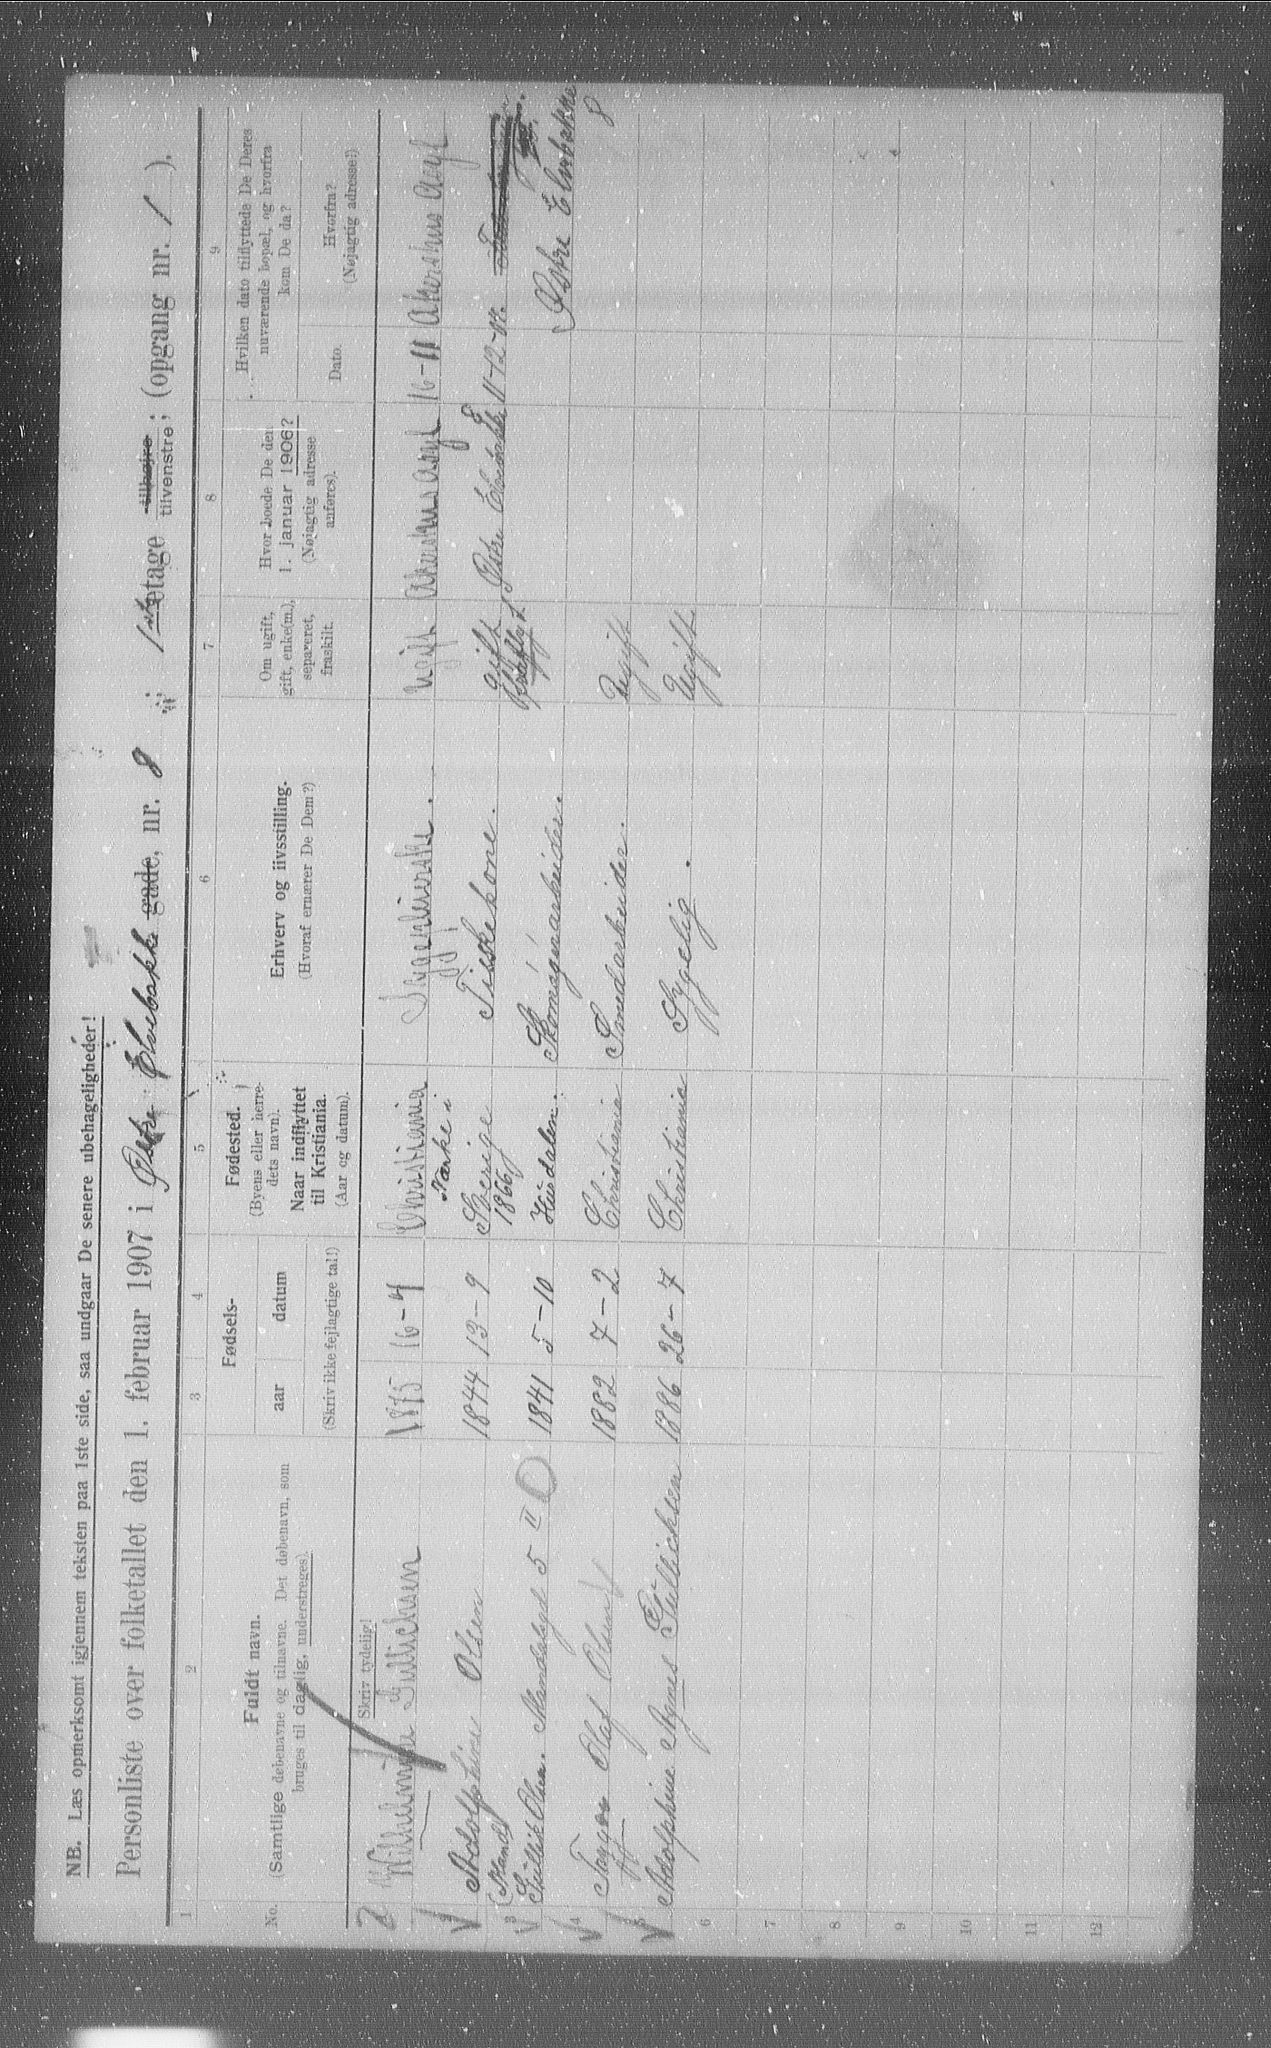 NB. Læs opmerksomt igjennem teksten paa 1ste side, saa undgaar De senere ubehageligheder!
Personliste over folketallet den 1. februar 1907 i Østre Elvebakke gade, nr. 8 ; 1ste etage tilhøjre tilvenstre; (opgang nr. 1 ).
1 2 3 4 5 6 7 8 9
No.
Fuldt navn.
(Samtlige døbenavne og tilnavne. Det døbenavn, som
bruges til daglig, understreges).
Skriv tydelig!
Fødsels-
aar datum
(Skriv ikke fejlagtige tal!)
Fødested.
(Byens eller herre-
dets navn).
Naar indflyttet
til Kristiania.
(Aar og datum).
Erhverv og livsstilling.
(Hvoraf ernærer De Dem?)
Om ugift,
gift, enke(m.),
separeret,
fraskilt.
Hvor boede De den
1. januar 1906?
(Nøjagtig adresse
anføres).
Hvilken dato tilflyttede De Deres
nuværende bopæl, og hvorfra
kom De da?
Dato.
Hvorfra?
(Nøjagtig adresse!)
Wilhelmine Gullichsen 1875 16-4 Christiania Sygepleierske. Ugift Akershus Asyl 16-11 Akershus Asyl
Adolphine Olsen 1844 13-9 Nerike i Sverige 1866 Fiskekone. gift Østre Elvebakke 8 11-12-04.
Østre Elvebakke 8
(Mand)
3 Gullik Olsen. Mandalsgd 5 II 1841 5-10 Hurdalen. Skomagerarbeider.
4 Olaf Olsen 1882 7-2 Christiania Smedarbeider. Ugift
5 Adolphine Agnes Gullichsen 1886 26-7 Christiania Sygelig. Ugift
6
7
8
9
10
11
12